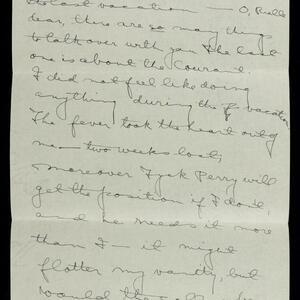 the last vacation — O, Bulls
dear, there are so many things
to talk over with you. The last
one is about the Courant.
I did not feel like doing
anything during the vacation
The fever took the heart out of
me — two weeks lost;
Moreover Perry will
get the position if I don't,
and he needs it more
than I — it might
flatter my vanity, but
would the